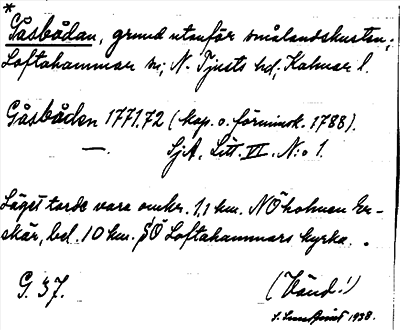 *
Gåsbådan, grund utanför smålandskusten;
Loftahammar sn; N. Tjusts hd; Kalmar l.
Gåsbåden 1771.72 (kop. o. förminsk. 1788).
—. SjA, Litt. VI. N:o 1.
Läget torde vara omkr. 1,1 km. NÖ holmen Er-
skär, bel. 10 km. SÖ Loftahammars kyrka.
G. 37. (Vänd!)
S. 1938.